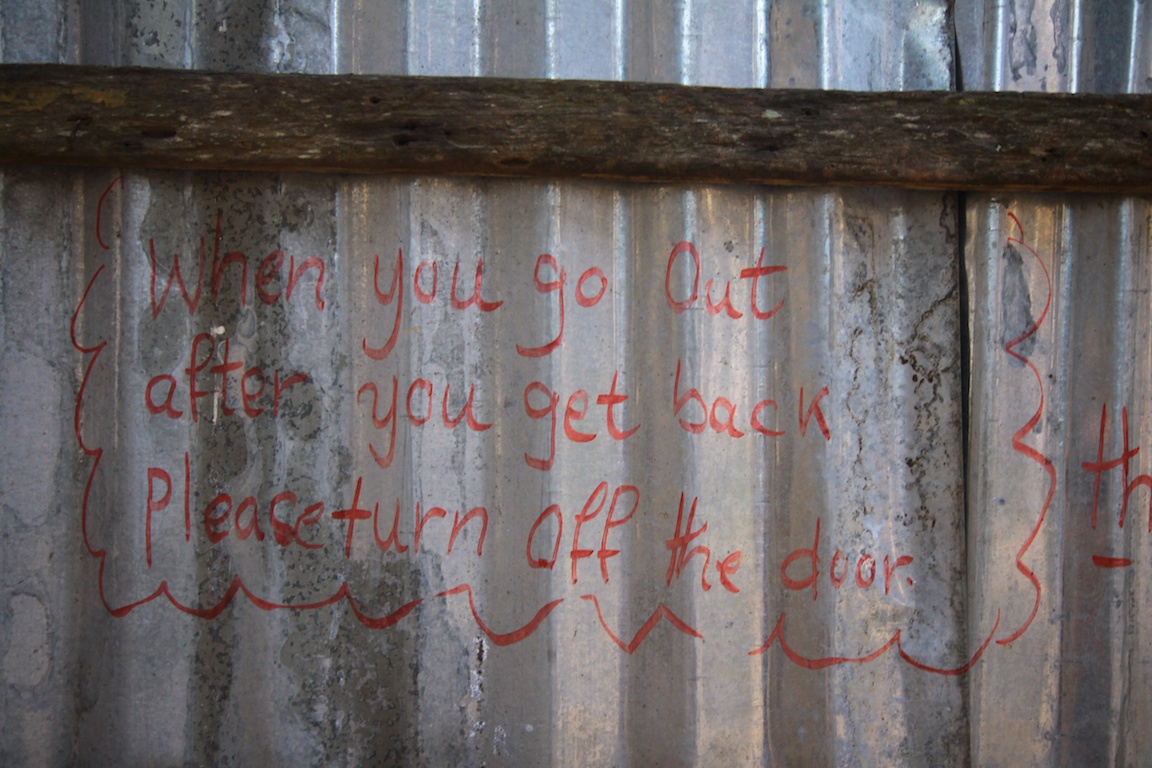 When you go Out
after you get back
Please turn Off the door.
th